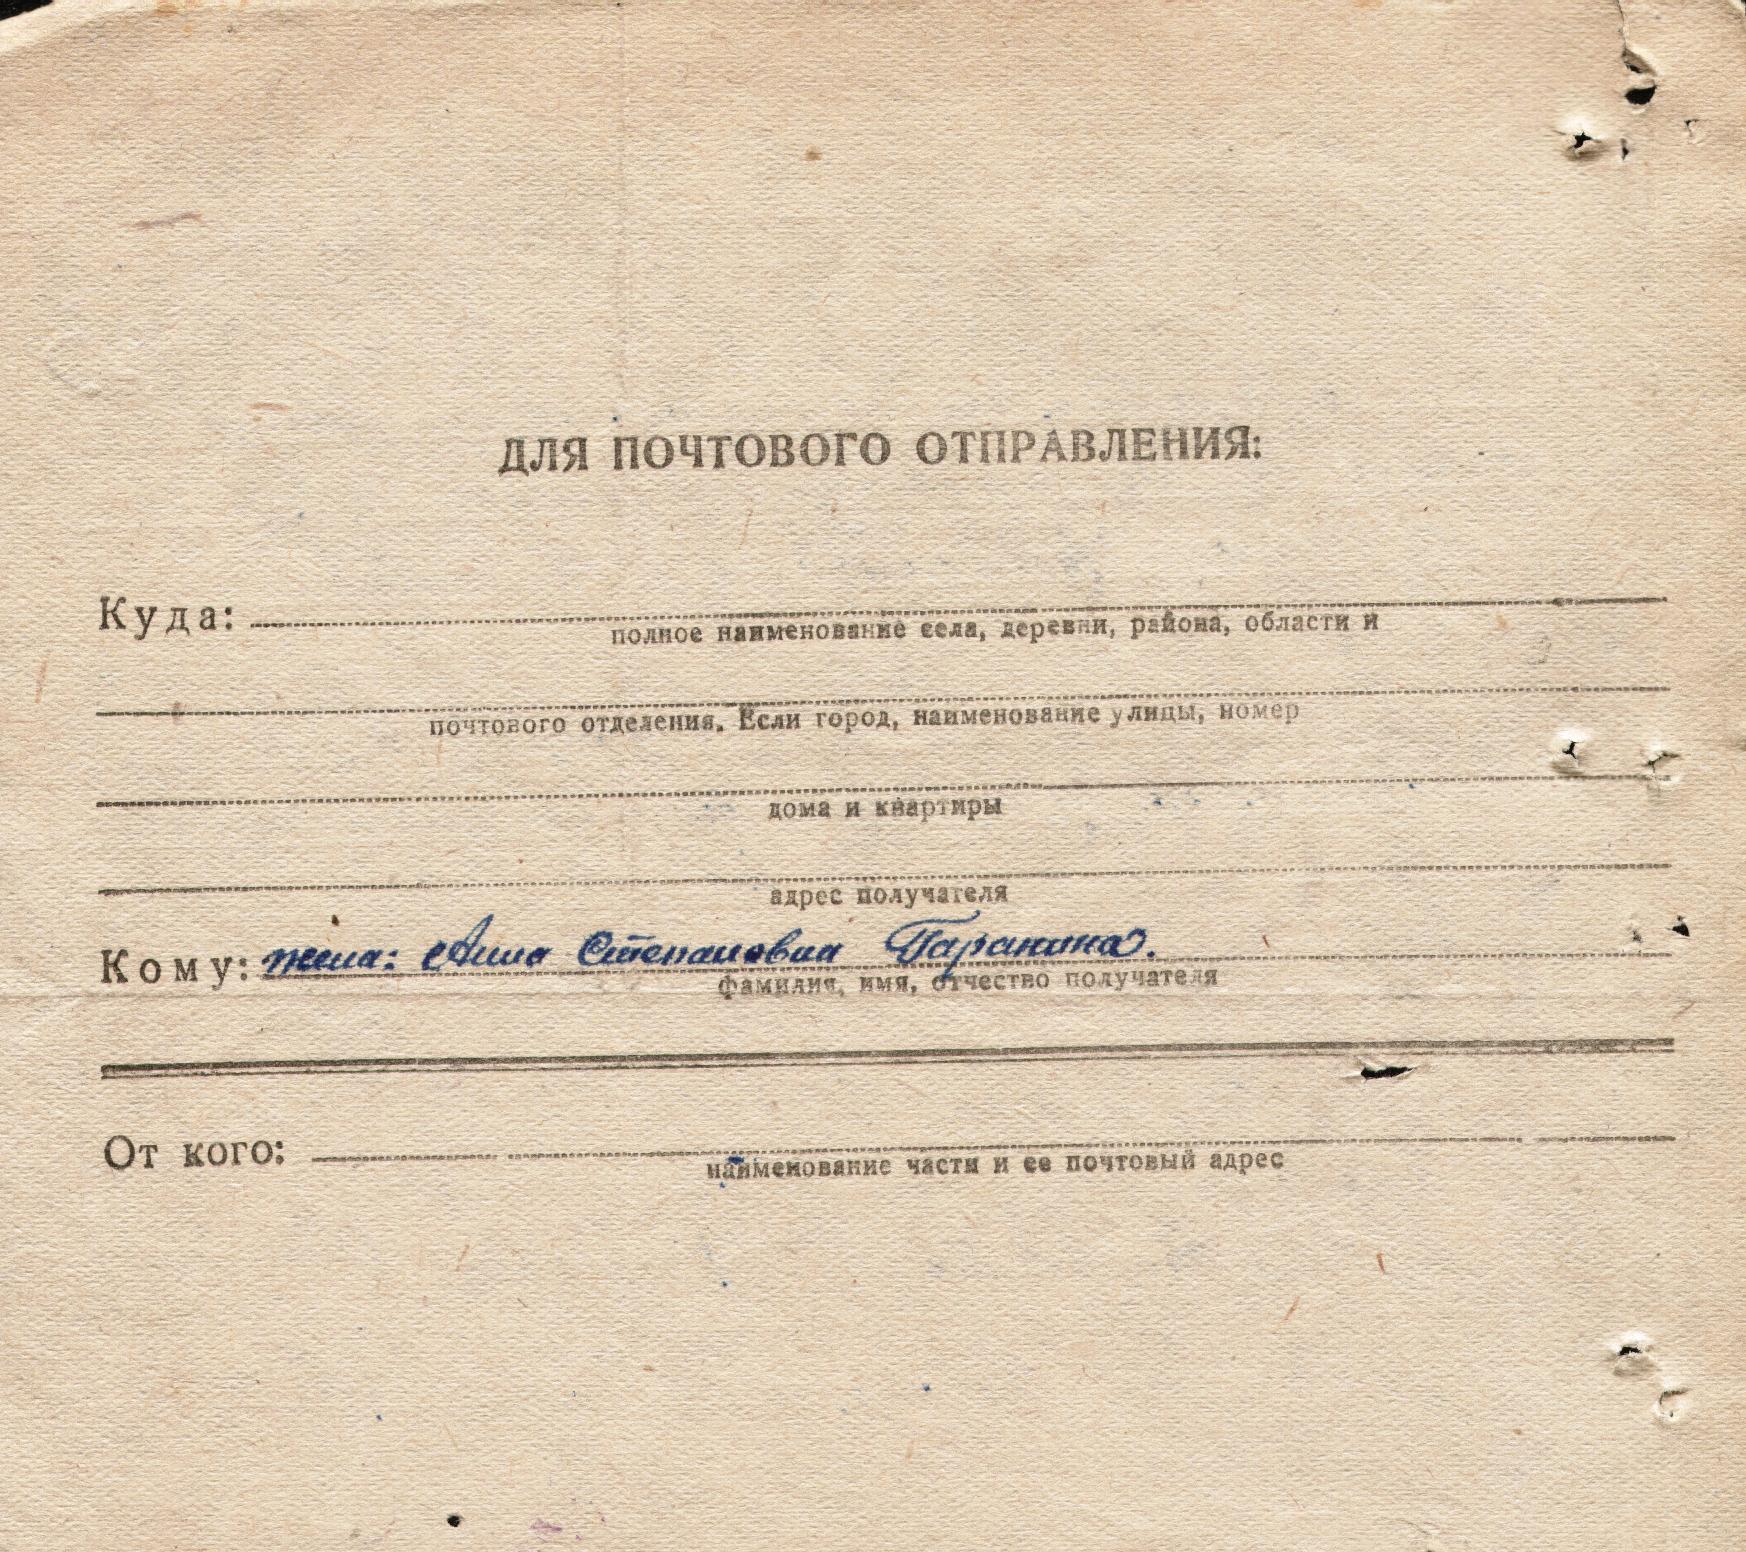 ДЛЯ ПОЧТОВОГО ОТПРАВЛЕНИЯ:
Куда:
полное наименование села, деревни, района, области и
почтового отделения. Если город, наименование улицы, номер
дома и квартиры
адрес получателя
Кому: жена: Анна Степановна Гаранина.
фамилия, имя, отчество получателя
От кого:
наименование части и ее почтовый адрес